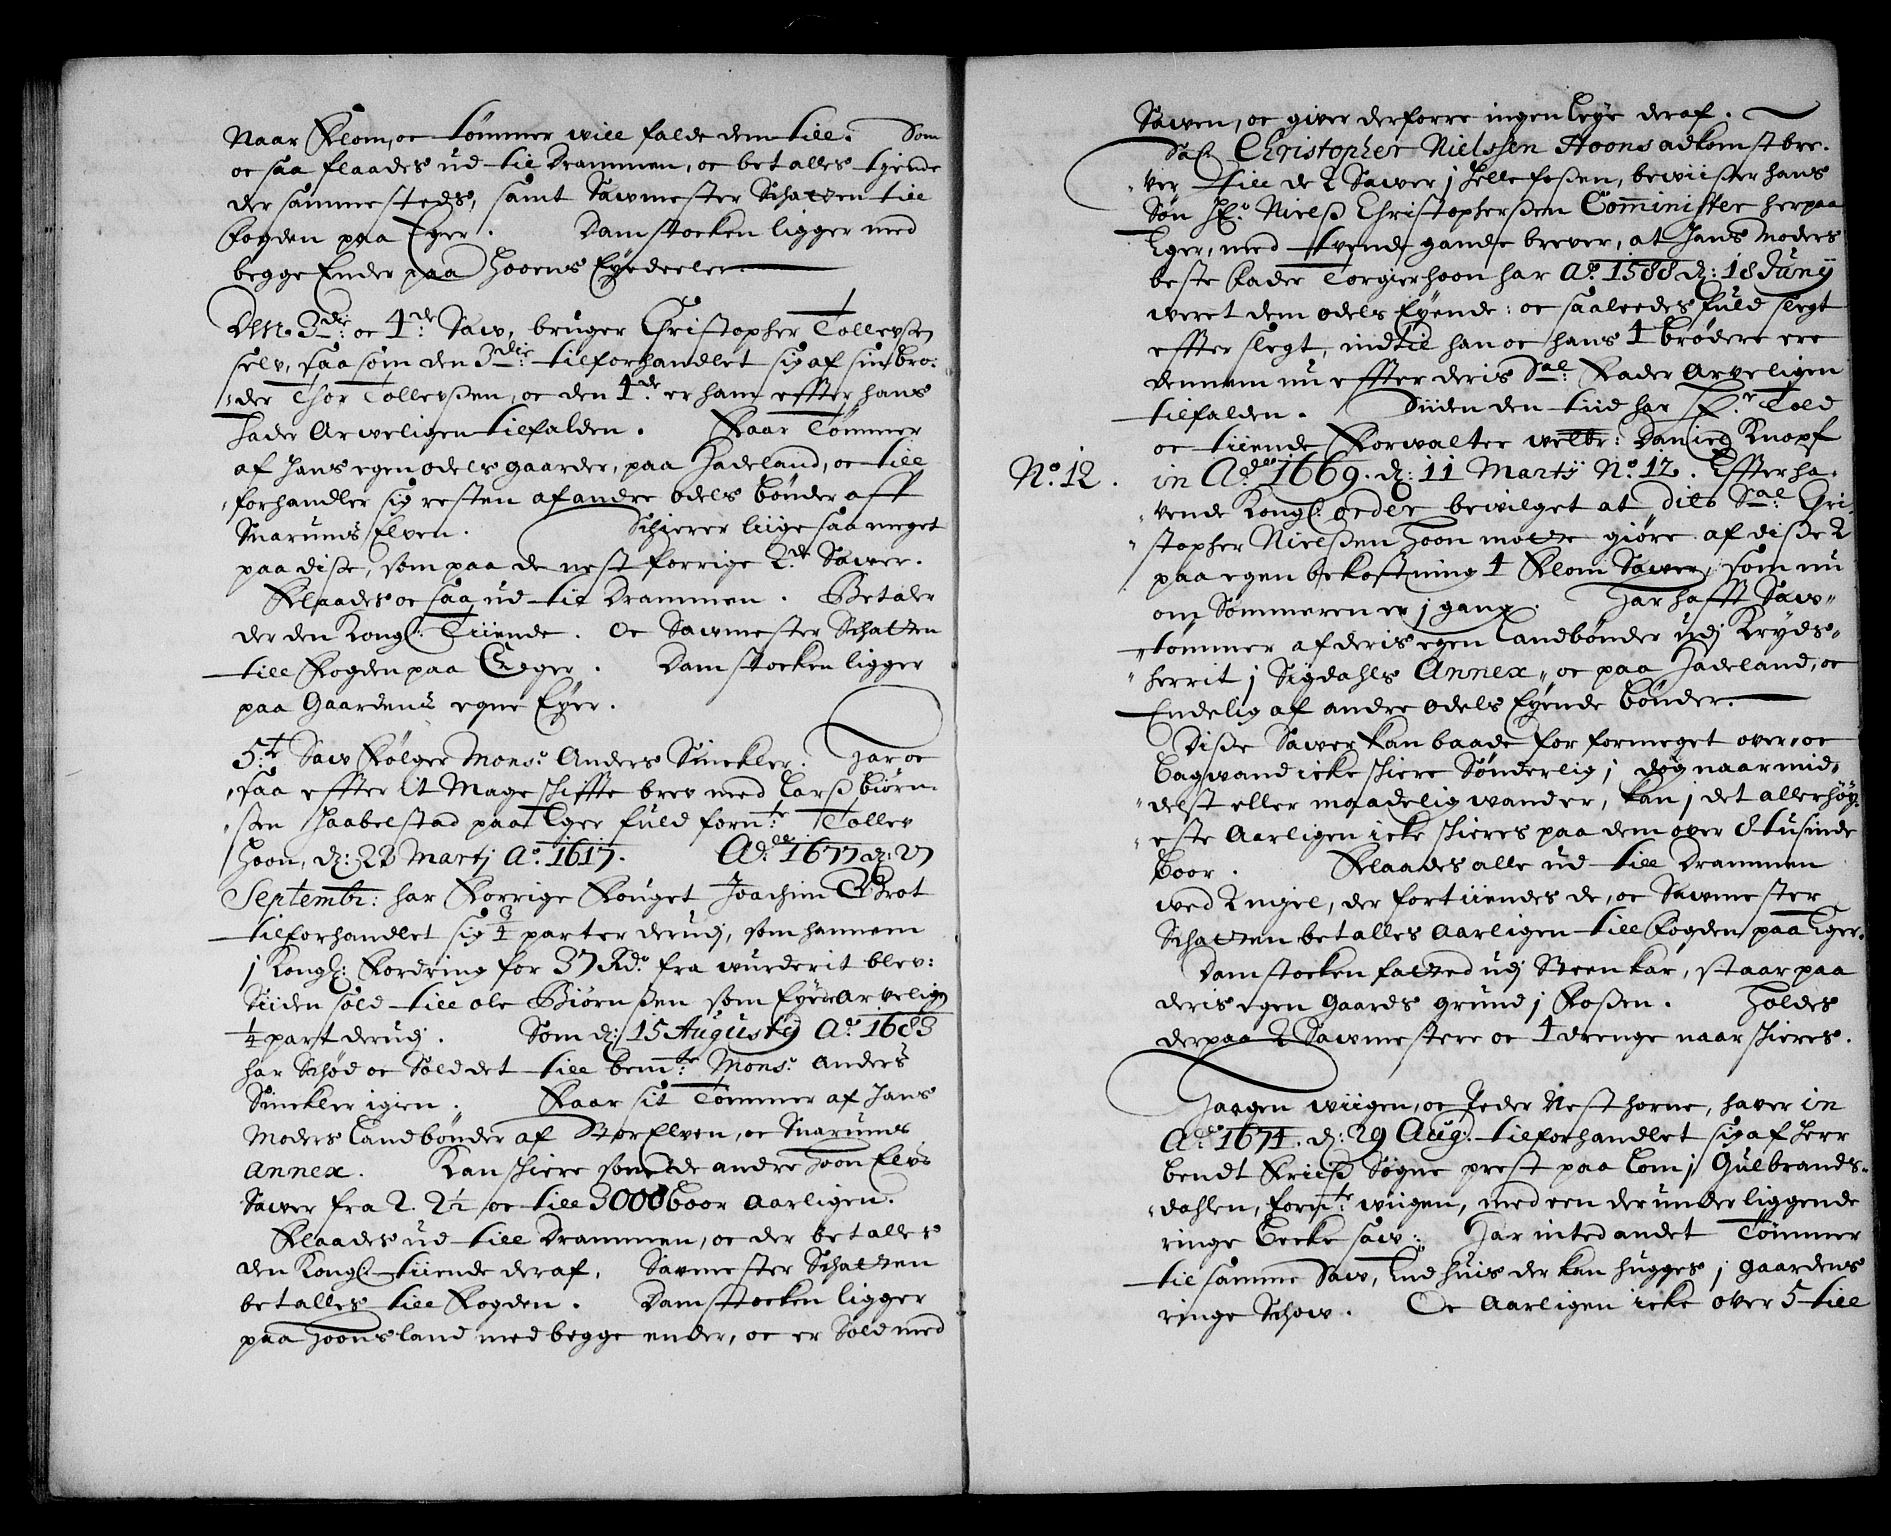 Naar Flom, oc tømmer will falde dem till. Som
oc saa flaades ud til Drammen, oc betalles tyende
der sammesteds, samt Sawmester Schatten till
Fogden paa Eger. Damstocken ligger med
begge Ender paa Hoens Eyedeeler.
Den 3die oc 4de Saw, bruger Christopher Tollevsen
selv, saasom den 3die tilforhandlet sig af sin bro-
der Thor Tollevssen, oc den 4de er ham effter hans
Fader Arweligen tilfalden. Faar Tømmer
af hans egen odels gaarder, paa Hadeland, oc till
forhandler sig resten af andre odels bønder aff
Snarums Elven. Schierer liige saa meget
paa disse, som paa de nest forrige 2de Sawer.
Flaades oc saa ud til Drammen. Betaler
der den Kongl: Tiiende. Oc Sawmester Schatten
till Fogden paa Eger. Damstocken ligger
paa Gaardens egne Eyer.
5te Saw Følger Monsr Anders Sinckler. Har oc
saa effter it Mageschiffte brev med Larss Biørn-
sen Haabelstad paa Eger fuld fornte Tollev
Hoon, d: 22 Martj Ao 1617. Ao 1677 d: 27
Septembr: har Forrige Fouget Joachim Brot
tilforhandlet sig 3/4 parter derudj, som hannem
j Kongl: Fordring for 37 Rdr fra wurderit blev:
Siiden sold till ole Biørnssen som Eyede Arvelig
1/4 part derudj. Som d: 15 Augustij Ao 1683
har Schød oc Sold det till bemte Monsr Anders
Sinckler igien. Faar sit Tømmer af hans
Moders Landbønder af StorElven, oc Snarums
Annex. Kan schiere som de andre Hoon Elvs
Sawer fra 2. 2½ oc till 3000 boor Aarligen.
Flaades ud till Drammen, oc der betalles
den Kongl: tiiende deraf, Sawmester Schatten
betalles till Fogden. Damstocken ligger
paa Hoons land med begge ender, oc er Sold med
Sawen, oc giver derforre ingen Leye deraf.
Sal: Christopher Nielssen Hoons adkomst bre-
ver till de 2 Sawer j Hellefossen, beviisser hans
Søn Hr Nielss Christopherssen Comminister herpaa
Eger, med tvende gamle brever, at hans Moders
beste Fader Torgier Hoon har Ao 1588 d: 18 Junij
weret dem odels Eyende: oc saaleedes fuld slegt
effter slegt, indtil han oc hans 4 brødere ere
dennem nu effter deris Sal: Fader Arveligen
tilfalden. Siiden den tiid har Hr Told
oc tiiende Forwalter welbr: Daniel Knopf
No. 12. in Ao 1669. d: 11 Martij No. 12. Effter ha-
vende Kongl: order bewilget at Dito Sal: Chri-
stopher Nielssen Hoon motte giøre af disse 2
paa egen bekostning 4 Flom Sawer, som nu
om Sommeren er j gang. Har hafft Saw-
tømmer af deris egen Landbønder udj Kryds-
herrit j Sigdahls Annex, oc paa Hadeland, oc
Endelig af andre odels Eyende bønder.
Disse Sawer kan baade for formeget over, oc
bagwand icke schiere Sønderlig; dog naar mid-
delst eller maadelig wander, kan j det allerhøy-
este Aarligen icke schieres paa dem over 8 tusinde
boor. Flaades alle ud till Drammen
wed Engel, der fortiiendes de, oc Sawmester
Schatten betalles Aarligen till Fogden paa Eger.
Damstocken fatted udj Steenkar, staar paa
deris egen Gaards grund j Fossen. Holdes
derpaa 2 Sawmestere oc 4 drenge naar schieres.
Haagen wiigen, oc Peder Nesthorne, haver in
Ao 1674. d: 29 Aug: tilforhandlet sig af Herr
bendt Friis Søgne prest paa Lom j Gulbrands-
dahlen, fornte wiigen, med een derunder liggende
ringe becke saw: Har inted andet Tømmer
til samme Saw, End huis der kan hugges j gaardens
ringe Schow. Oc Aarligen icke over 5 till